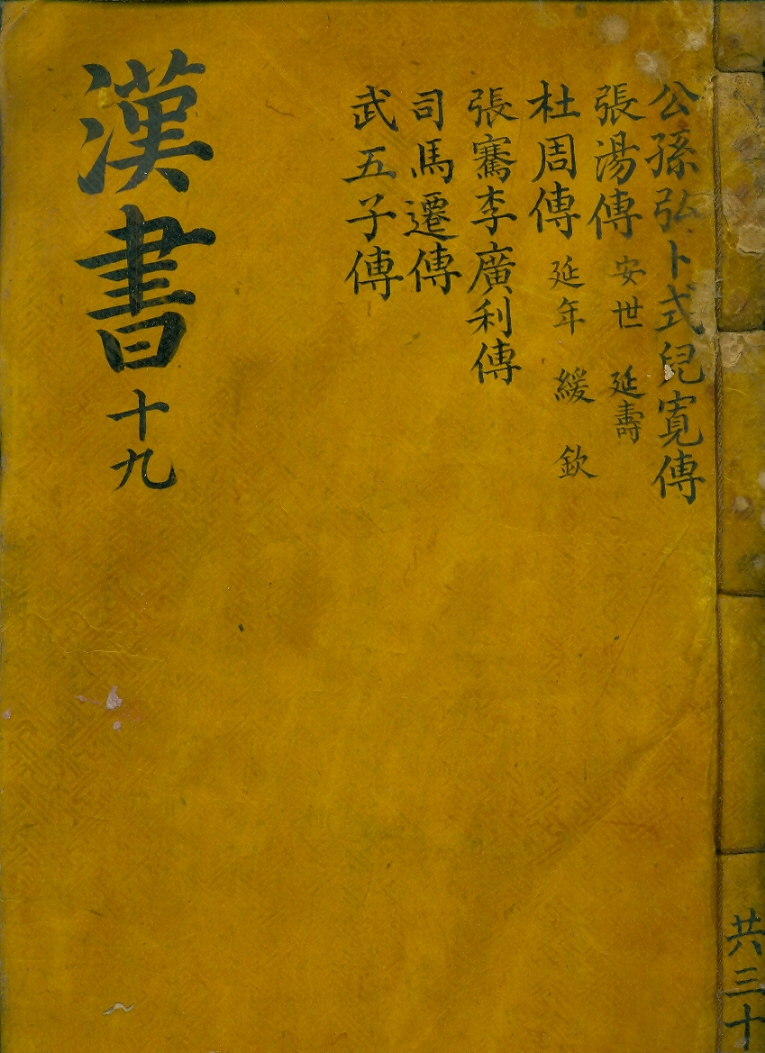 公孫弘卜式兒寬傳
張湯傳 安世 延壽
杜周傳 延年 緩 欽
張騫李廣利傳
司馬遷傳
武五子傳
漢書 十九
共三十